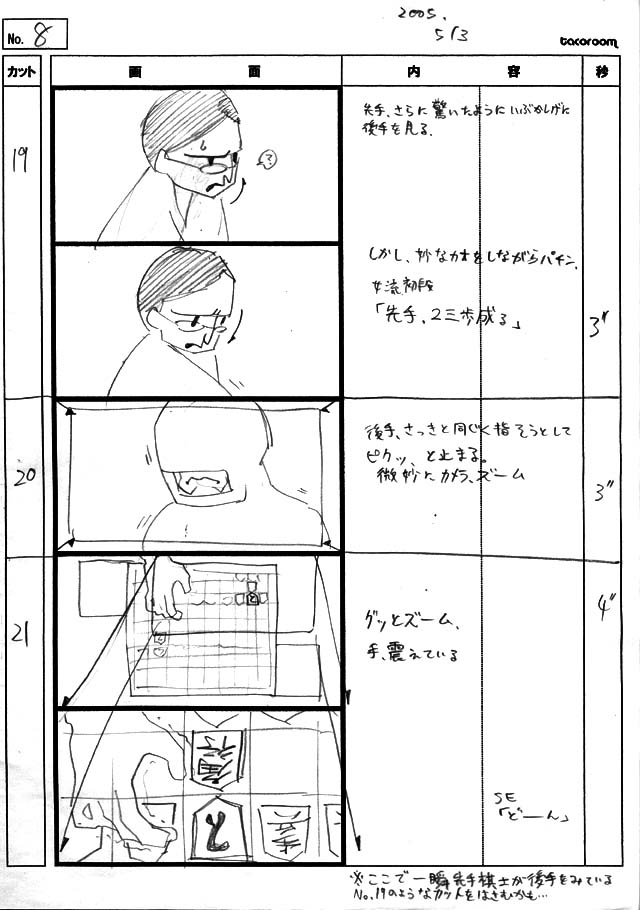 2005.
5/3
No. 8
tacoroom
カット
画
面
内
容
秒
19
?
先手、さらに驚いたようにいぶかしげに
後手を見る.
しかし、妙なカオをしながらパチン.
女流初段
「先手、2三歩成る」
3"
20
後手、さっきと同じく指そうとして
ピクッ、と止まる。
微妙にカメラ、ズーム
3"
21
グッとズーム、
手、震えている
4"
と
SE
「どーん」
※ここで一瞬先手棋士が後手をみている
No,19のようなカットをはさむかも…